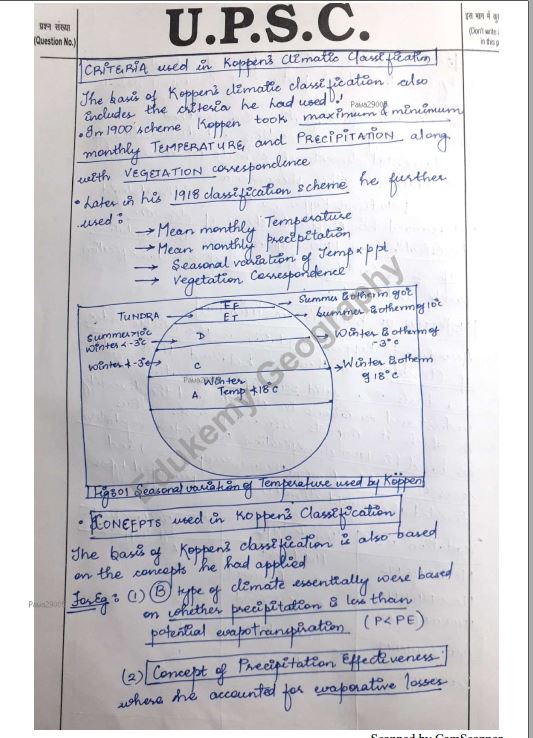 प्रश्न संख्या
(Question No.)
U.P.S.C.
इस भाग में कु
(Don't write
in this p
CRITERIA used in Koppen's Climatic Classification
The basis of Koppen's climatic classification also
includes the criteria he had used:
Pawa2900
• In 1900 scheme Koppen took maximum & minimum
monthly TEMPERATURE, and PRECIPITATION along
with VEGETATION correspondence
• Later in his 1918 classification scheme he further
used:
→ Mean monthly Temperature
→ Mean monthly precipitation
→ Seasonal variation of Temp & ppt
→ Vegetation Correspondence
EF
Summer Isotherm of 0°c
TUNDRA →
ET
Summer Isotherm of 10°c
Summer >10°c
Winter <-3°c
D
Winter Isotherm of
-3°c
Winter ≮ -3°c
C
Winter Isotherm
of 18°c
Pawa2900
Winter
A Temp ≮ 18°c
Edukemy Geography
Fig 301 Seasonal variation of Temperature used by Köppen
• CONCEPTS used in Koppen's Classification
The basis of Koppen's classification is also based
on the concepts he had applied
For Eg: (1) B type of climate essentially were based
Pawa2900
on whether precipitation is less than
potential evapotranspiration (P<PE)
(2) Concept of Precipitation Effectiveness:
where he accounted for evaporative losses
Scanned by CamScanner